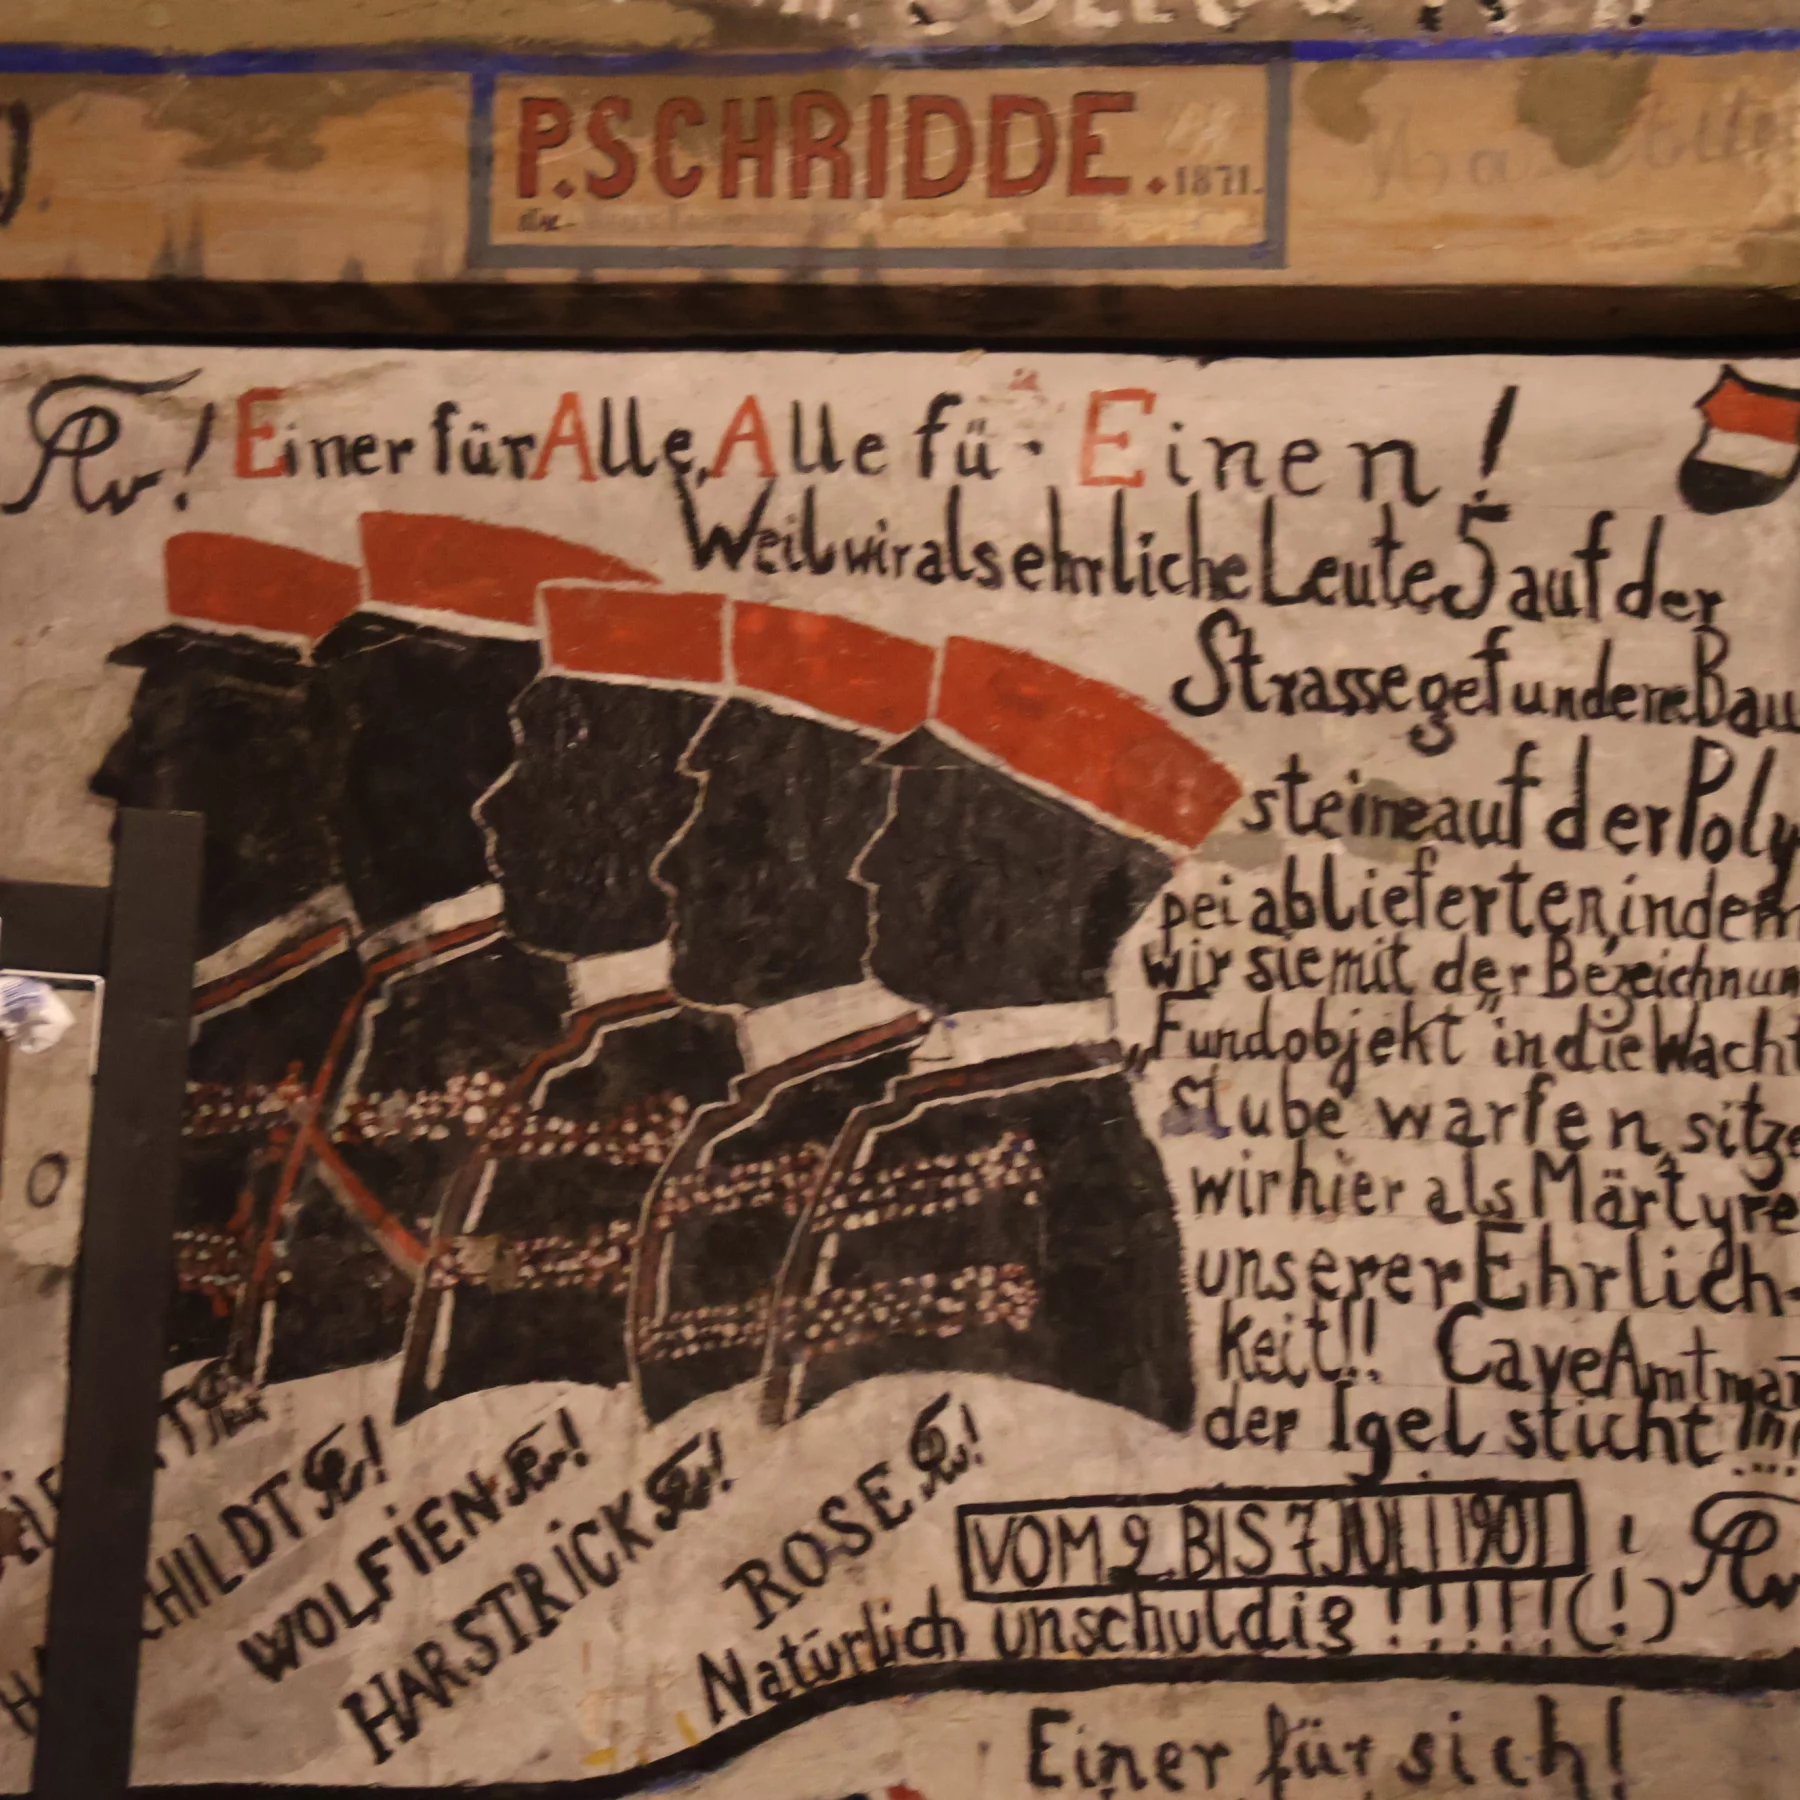 P. SCHRIDDE. 1871.
! Einer für Alle, Alle fü Einen!
Weil wir als ehrliche Leute 5 auf der
Strasse gefundene Bau
steine auf der Poly
pei ablieferten, indem
wir sie mit der Bezeichnun
„Fundobjekt" in die Wacht
stube warfen, sitze
wir hier als Märtyre
unserer Ehrlich-
keit!! Cave Amtman
der Igel sticht
CHILDT !
WOLFIEN !
HARSTRICK !
ROSE !
VOM 2. BIS 7 JULI 1901 !
Natürlich unschuldig !!!!!! (!)
Einer für sich!